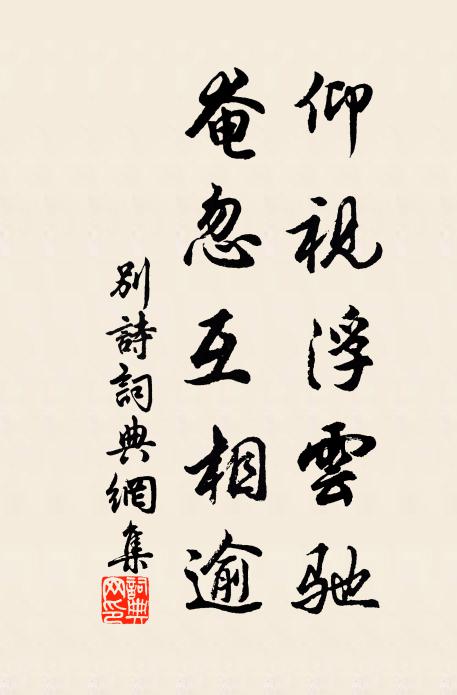 仰視浮雲馳
奄忽互相逾
別詩詞典網集
詞典网印